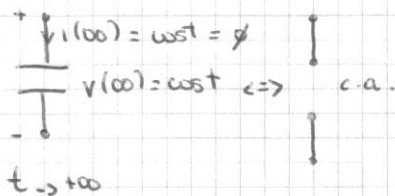 + i(∞) = cost = ∅
v(∞) = cost <=> c.a.
-
t -> +∞